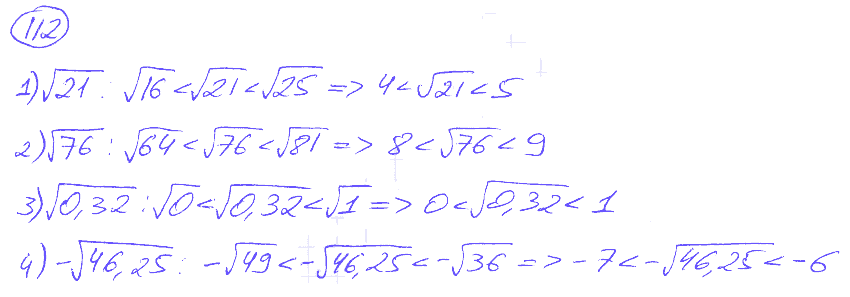 112
1) √21 : √16 < √21 < √25 => 4 < √21 < 5
2) √76 : √64 < √76 < √81 => 8 < √76 < 9
3) √0,32 : √0 < √0,32 < √1 => 0 < √0,32 < 1
4) -√46,25 : -√49 < -√46,25 < -√36 => -7 < -√46,25 < -6